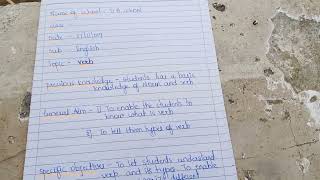 Name of school - S.B. school
class
Date - 
Sub - English
Topic - verb
previous knowledge - students has a basic
knowledge of noun and verb
General Aim - 1) To enable the students to
know what is verb
2) To tell them types of verb
specific objectives - To let students understand
verb and its types. To enable
different